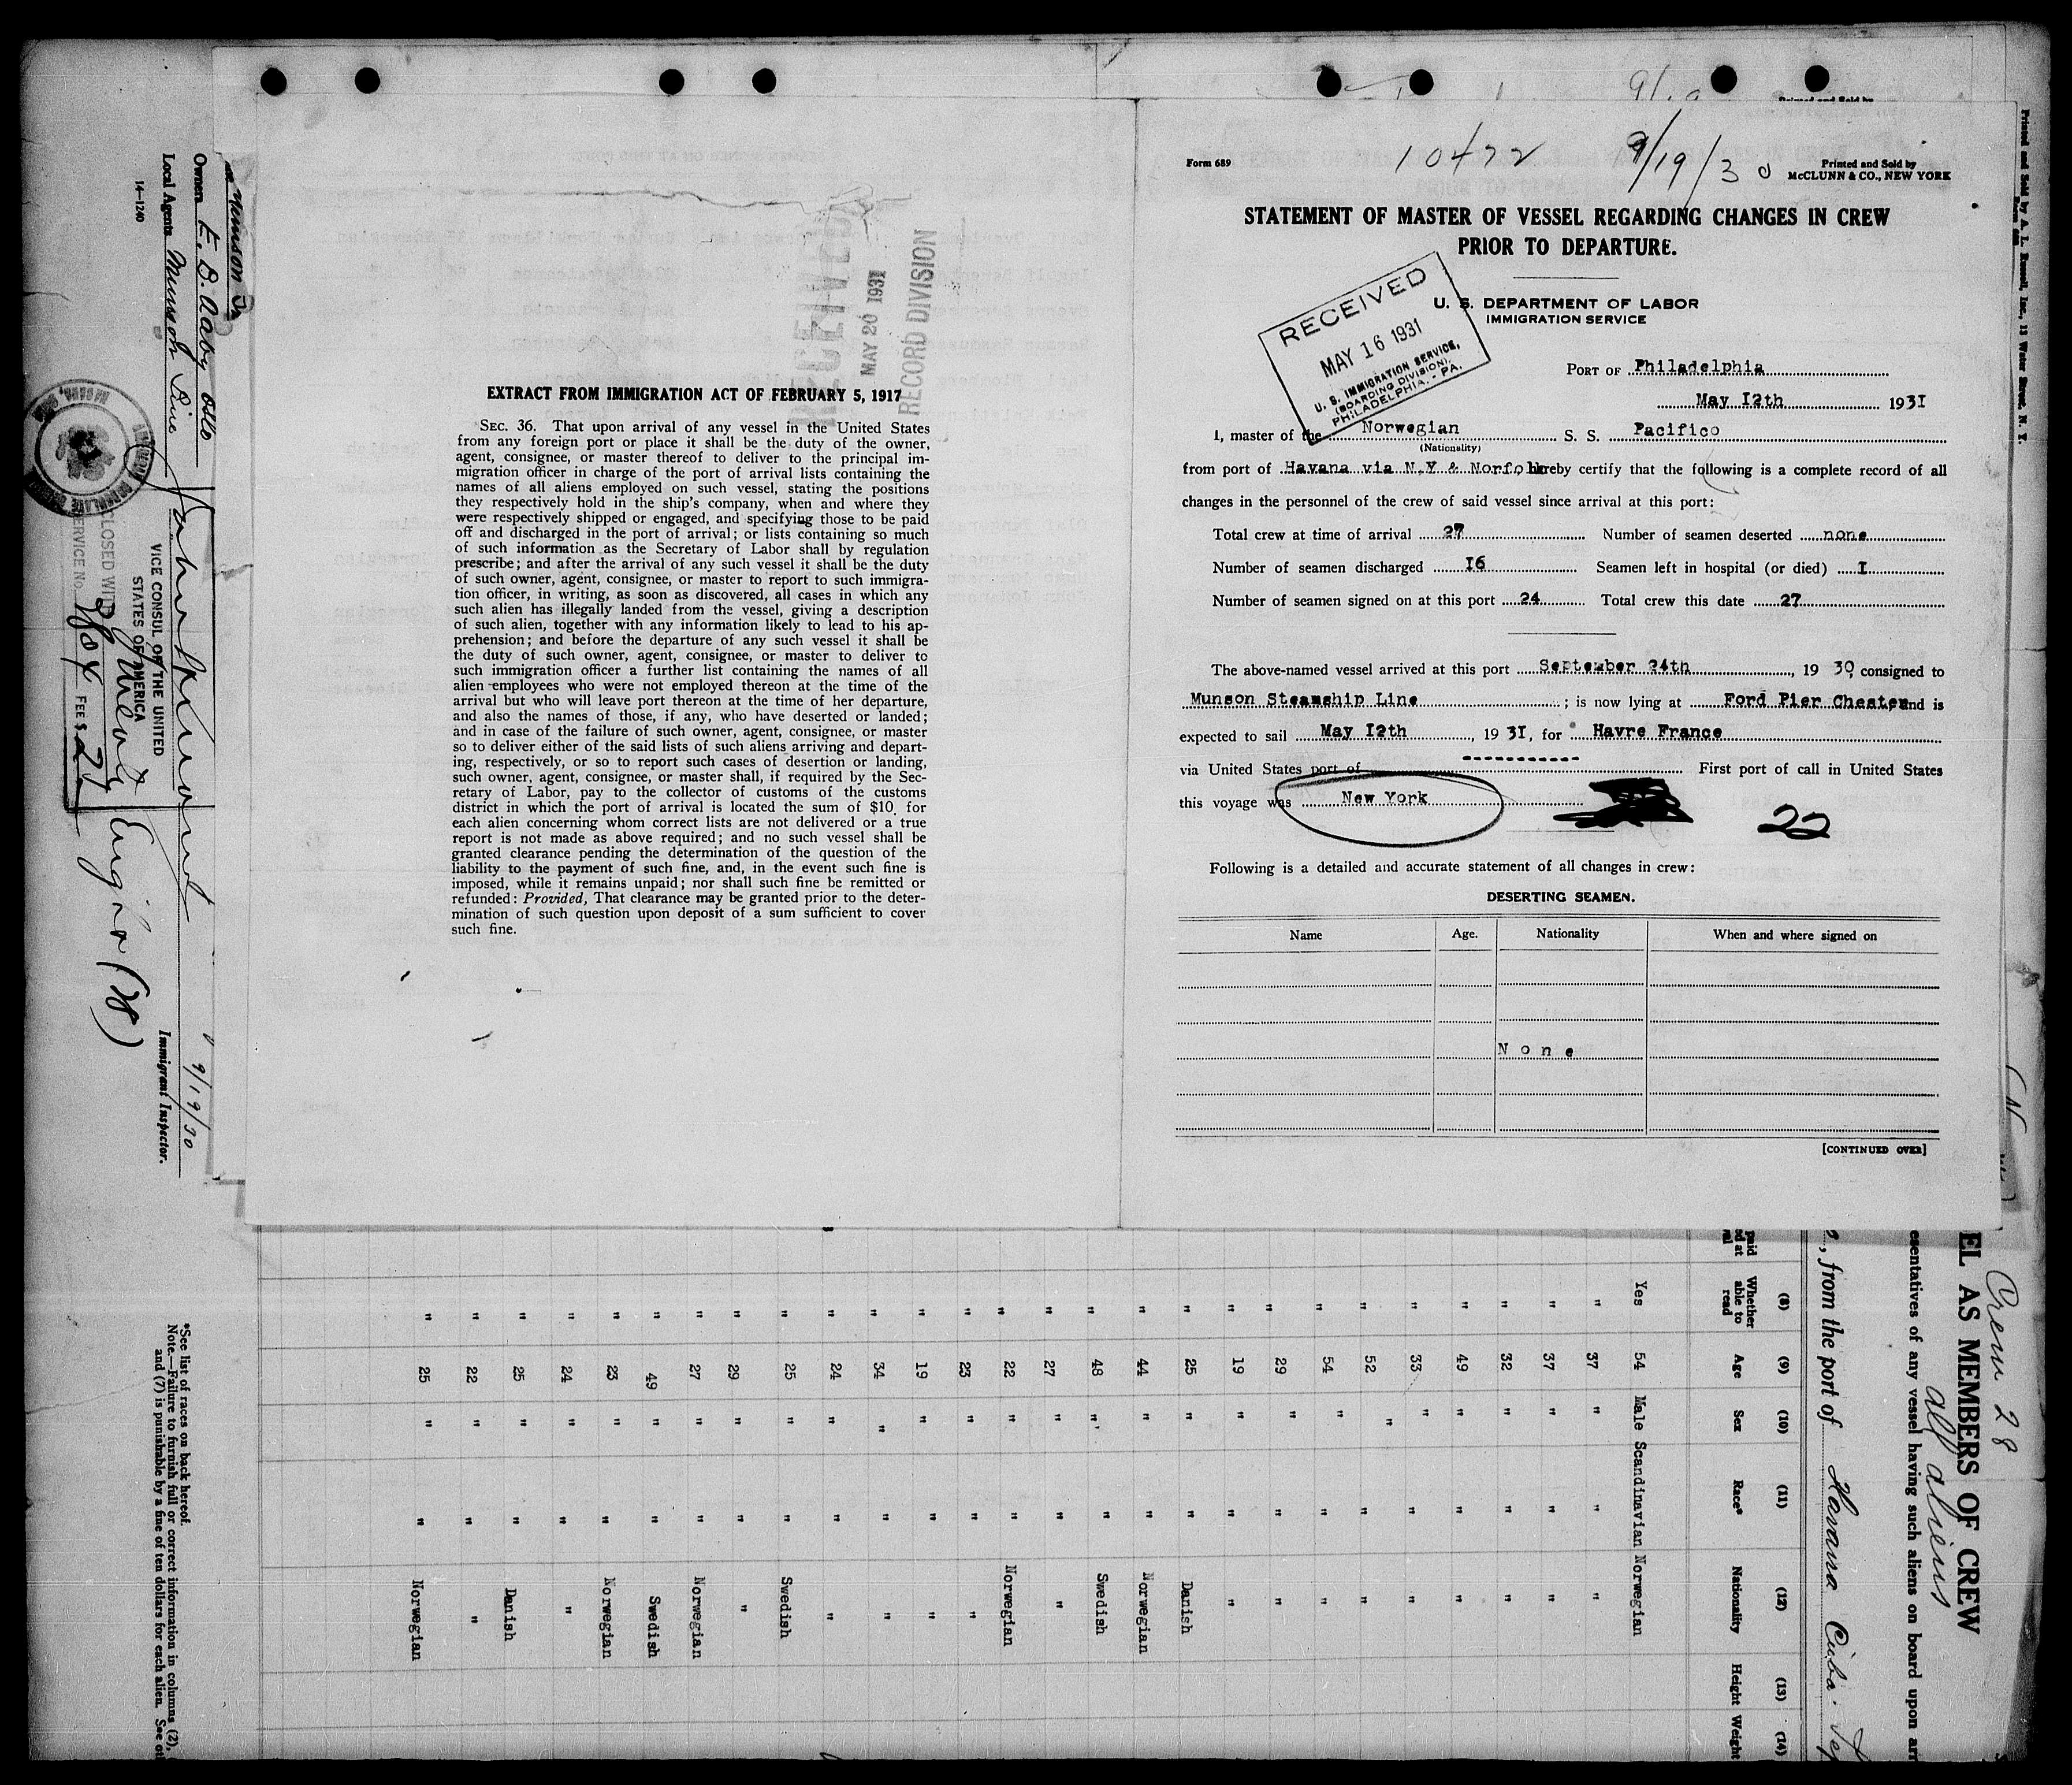 Form 689
10422
9/19/30
Printed and Sold by
McCLUNN & CO., NEW YORK
STATEMENT OF MASTER OF VESSEL REGARDING CHANGES IN CREW
PRIOR TO DEPARTURE.
U. S. DEPARTMENT OF LABOR
IMMIGRATION SERVICE
RECEIVED
MAY 16 1931
U. S. IMMIGRATION SERVICE,
(BOARDING DIVISION),
PHILADELPHIA, - PA.
PORT OF Philadelphia
May I2th 193I
I, master of the Norwegian S. S. Pacifico
(Nationality)
from port of Havana via N.Y & Norfolk hereby certify that the following is a complete record of all
changes in the personnel of the crew of said vessel since arrival at this port:
Total crew at time of arrival 27 Number of seamen deserted none
Number of seamen discharged I6 Seamen left in hospital (or died) I
Number of seamen signed on at this port 24 Total crew this date 27
The above-named vessel arrived at this port September 24th, 19 30, consigned to
Munson Steamship Line; is now lying at Ford Pier Chester and is
expected to sail May I2th, 19 3I, for Havre France
via United States port of First port of call in United States
this voyage was New York
22
Following is a detailed and accurate statement of all changes in crew:
DESERTING SEAMEN.
Name Age. Nationality When and where signed on
None
[CONTINUED OVER]
RECEIVED
MAY 20 1931
RECORD DIVISION
EXTRACT FROM IMMIGRATION ACT OF FEBRUARY 5, 1917
SEC. 36. That upon arrival of any vessel in the United States
from any foreign port or place it shall be the duty of the owner,
agent, consignee, or master thereof to deliver to the principal im-
migration officer in charge of the port of arrival lists containing the
names of all aliens employed on such vessel, stating the positions
they respectively hold in the ship's company, when and where they
were respectively shipped or engaged, and specifying those to be paid
off and discharged in the port of arrival; or lists containing so much
of such information as the Secretary of Labor shall by regulation
prescribe; and after the arrival of any such vessel it shall be the duty
of such owner, agent, consignee, or master to report to such immigra-
tion officer, in writing, as soon as discovered, all cases in which any
such alien has illegally landed from the vessel, giving a description
of such alien, together with any information likely to lead to his ap-
prehension; and before the departure of any such vessel it shall be
the duty of such owner, agent, consignee, or master to deliver to
such immigration officer a further list containing the names of all
alien employees who were not employed thereon at the time of the
arrival but who will leave port thereon at the time of her departure,
and also the names of those, if any, who have deserted or landed;
and in case of the failure of such owner, agent, consignee, or master
so to deliver either of the said lists of such aliens arriving and depart-
ing, respectively, or so to report such cases of desertion or landing,
such owner, agent, consignee, or master shall, if required by the Sec-
retary of Labor, pay to the collector of customs of the customs
district in which the port of arrival is located the sum of $10 for
each alien concerning whom correct lists are not delivered or a true
report is not made as above required; and no such vessel shall be
granted clearance pending the determination of the question of the
liability to the payment of such fine, and, in the event such fine is
imposed, while it remains unpaid; nor shall such fine be remitted or
refunded: Provided, That clearance may be granted prior to the deter-
mination of such question upon deposit of a sum sufficient to cover
such fine.
Printed and Sold by A. L. Russell, Inc., 13 Water Street, N. Y.
Crew 28
all aliens
EL AS MEMBERS OF CREW
esentatives of any vessel having such aliens on board upon arr
, from the port of Havana Cuba
(8) (9) (10) (11) (12) (13) (14)
Whether able to read Age Sex Race* Nationality Height Weight
Yes 54 Male Scandinavian Norwegian
" 37 " " "
" 37 " " "
" 32 " " "
" 49 " " "
" 33 " " "
" 52 " " "
" 54 " " "
" 29 " " "
" 19 " " "
" 25 " " Danish
" 44 " " Norwegian
" 48 " " Swedish
" 27 " " "
" 22 " " Norwegian
" 23 " " "
" 19 " " "
" 34 " " "
" 24 " " "
" 25 " " Swedish
" 29 " " "
" 27 " " Norwegian
" 49 " " Swedish
" 23 " " Norwegian
" 24 " " "
" 25 " " Danish
" 22 " " "
" 25 " " Norwegian
Munson
Owners E. B. Aaby Oslo
Local Agents Munson Line
14—1240
VICE CONSUL OF THE UNITED
STATES OF AMERICA
SERVICE No. FEE $
9/19/30
Immigrant Inspector.
*See list of races on back hereof.
Note.—Failure to furnish full or correct information in columns (2),
and (7) is punishable by a fine of ten dollars for each alien. See